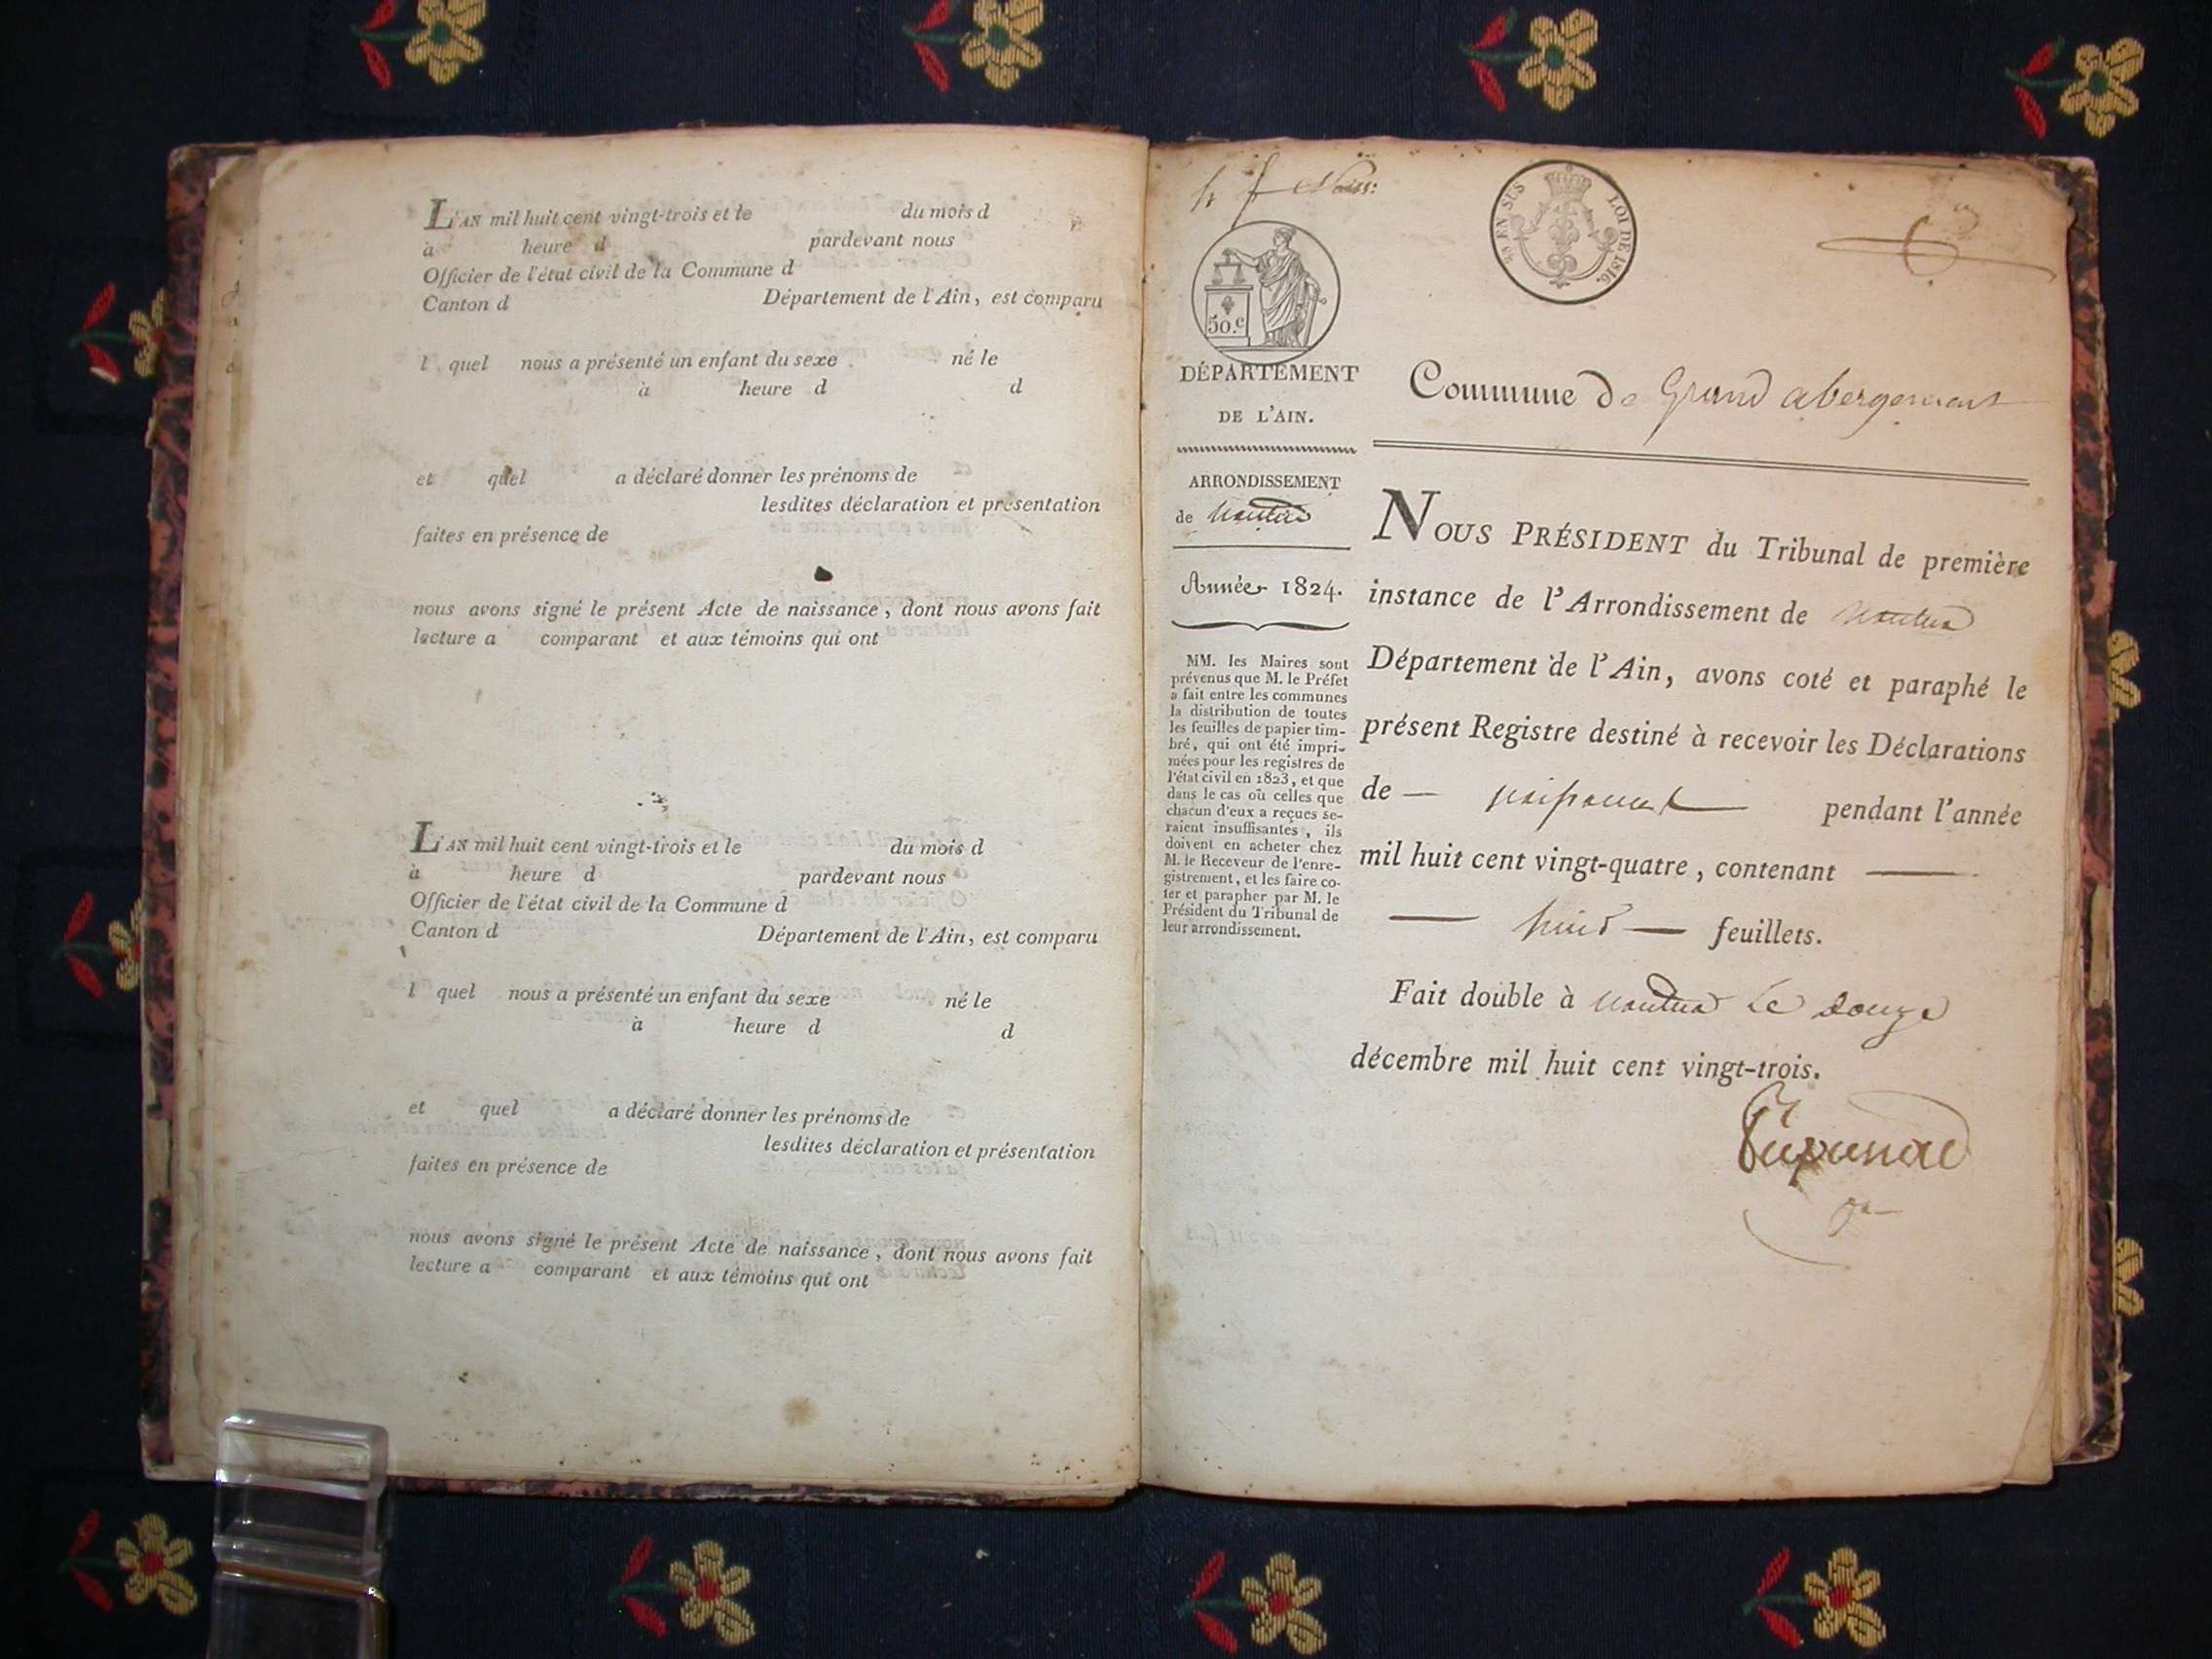 L'AN mil huit cent vingt-trois et le du mois d
à heure d pardevant nous
Officier de l'état civil de la Commune d
Canton d Département de l'Ain, est comparu
l quel nous a présenté un enfant du sexe né le
à heure d d
et quel a déclaré donner les prénoms de
lesdites déclaration et présentation
faites en présence de
nous avons signé le présent Acte de naissance, dont nous avons fait
lecture a comparant et aux témoins qui ont
L'AN mil huit cent vingt-trois et le du mois d
à heure d pardevant nous
Officier de l'état civil de la Commune d
Canton d Département de l'Ain, est comparu
l quel nous a présenté un enfant du sexe né le
à heure d d
et quel a déclaré donner les prénoms de
lesdites déclaration et présentation
faites en présence de
nous avons signé le présent Acte de naissance, dont nous avons fait
lecture a comparant et aux témoins qui ont
Naiss:
EN SUS LOI DE 1816.
50.c
DÉPARTEMENT
DE L'AIN.
ARRONDISSEMENT
de Nantua
Année 1824.
MM. les Maires sont
prévenus que M. le Préfet
a fait entre les communes
la distribution de toutes
les feuilles de papier tim-
bré, qui ont été impri-
mées pour les registres de
l'état civil en 1823, et que
dans le cas où celles que
chacun d'eux a reçues se-
raient insuffisantes, ils
doivent en acheter chez
M. le Receveur de l'enre-
gistrement, et les faire co-
ter et parapher par M. le
Président du Tribunal de
leur arrondissement.
Commune de Grand abergement
NOUS PRÉSIDENT du Tribunal de première
instance de l'Arrondissement de Nantua
Département de l'Ain, avons coté et paraphé le
présent Registre destiné à recevoir les Déclarations
de — naissance — pendant l'année
mil huit cent vingt-quatre, contenant —
— huit — feuillets.
Fait double à Nantua Le douze
décembre mil huit cent vingt-trois.